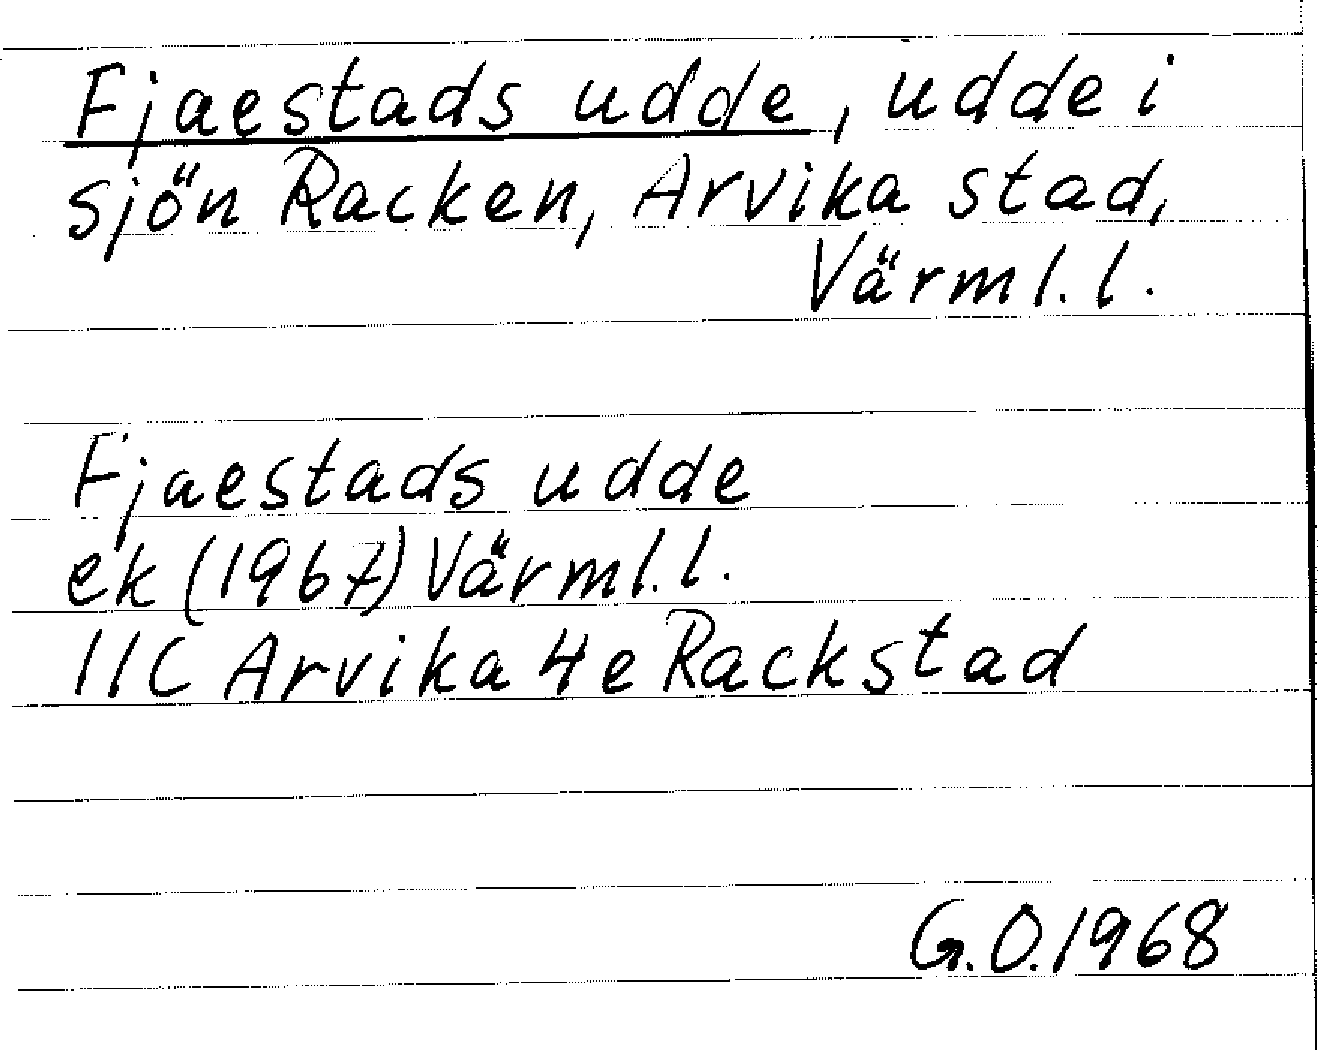 Fjaestads udde, udde i
sjön Racken, Arvika stad,
Värml. l.
Fjaestads udde
ek (1967) Värml. l.
11C Arvika 4e Rackstad
G.O. 1968